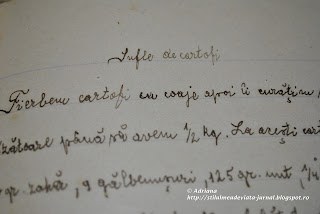 Sufle de cartofi
Fierbem cartofi cu coaje apoi îi curățim
zătoare până să avem 1/2 kg. La acești cart
gr. zahăr, 9 gălbenușuri, 125 gr. unt, 1/4
© Adriana
http://stilulmendeviata-jurnal.blogspot.ro